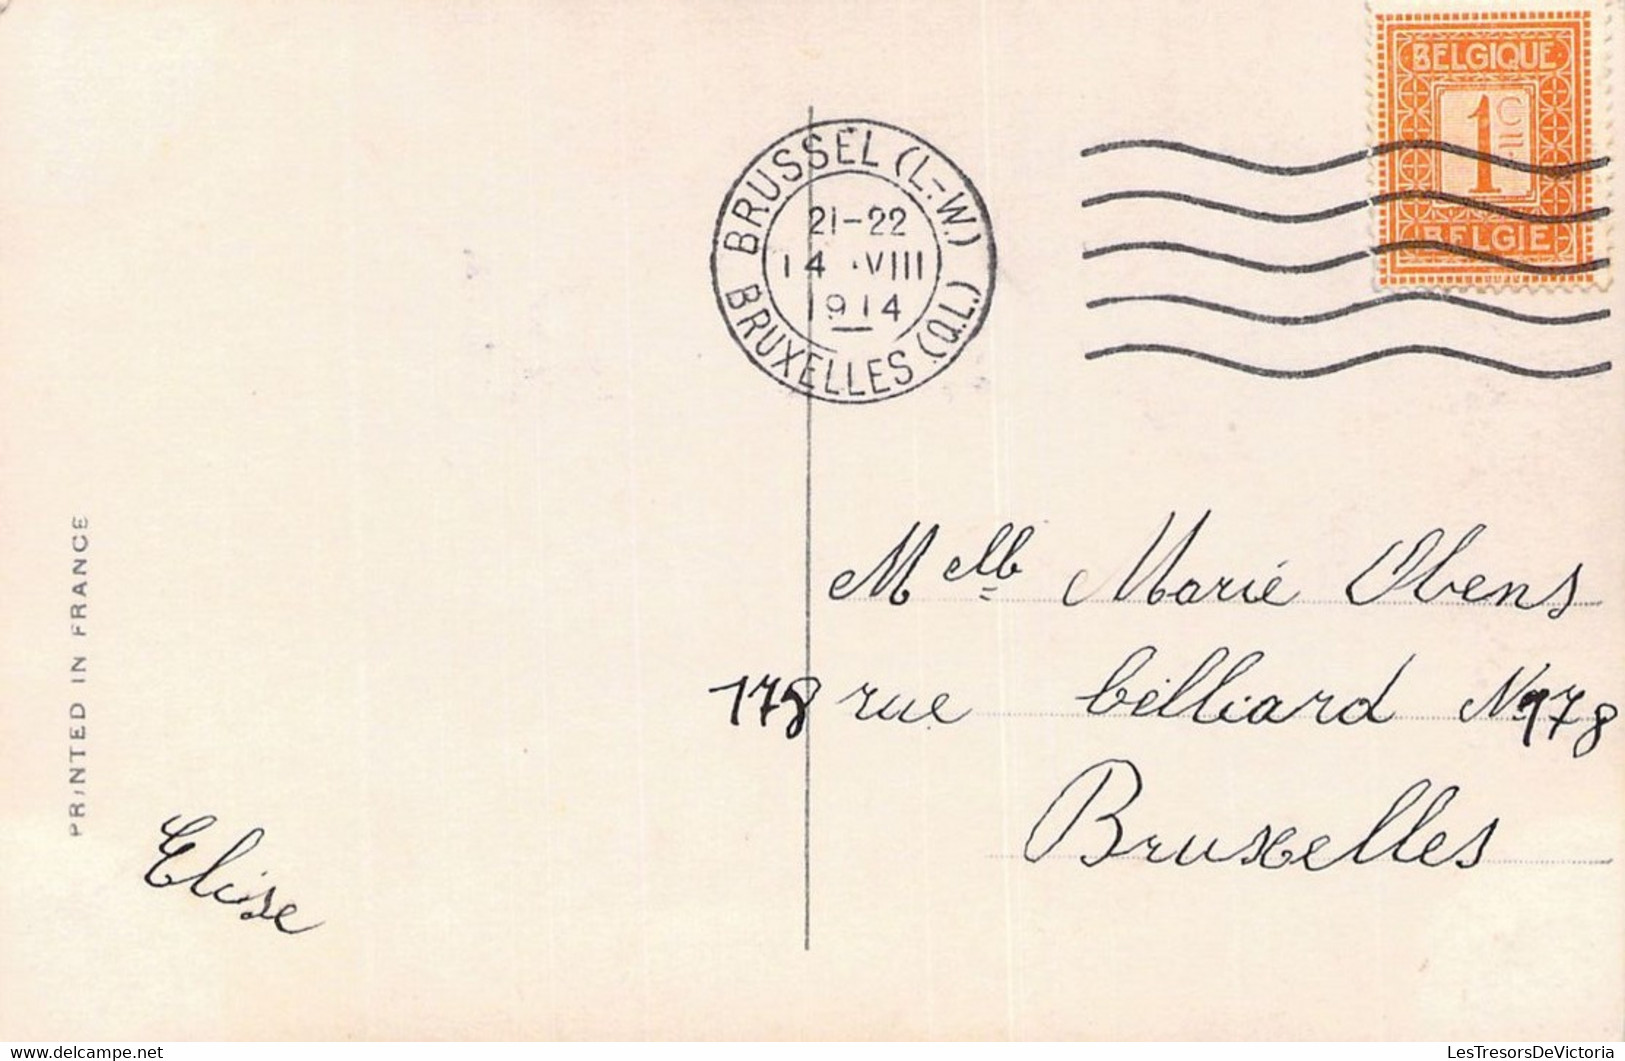 BELGIQUE
1 C
BELGIE
BRUSSEL (L.-W.)
21-22
14 VIII
1914
BRUXELLES (Q.L.)
PRINTED IN FRANCE
Melle Marie Obens
178 rue bélliard No 178
Bruxelles
Elise
delcampe.net
LesTresorsDeVictoria